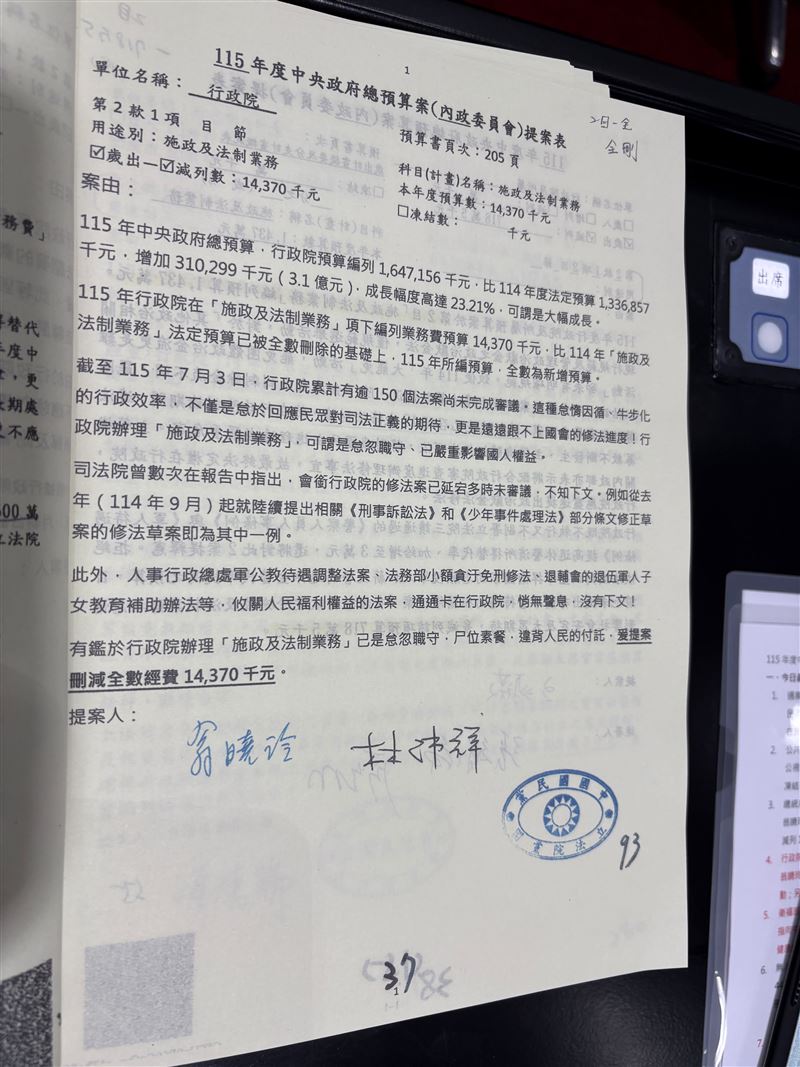 1
115 年度中央政府總預算案(內政委員會)提案表
單位名稱： 行政院
2目-全
全刪
第 2 款 1 項　目　節
預算書頁次：205 頁
用途別：施政及法制業務
科目(計畫)名稱：施政及法制業務
☑歲出－☑減列數：14,370 千元
本年度預算數：14,370 千元
□凍結數：　　千元
案由：
115 年中央政府總預算，行政院預算編列 1,647,156 千元，比 114 年度法定預算 1,336,857
千元，增加 310,299 千元（3.1 億元），成長幅度高達 23.21%，可謂是大幅成長。
115 年行政院在「施政及法制業務」項下編列業務費預算 14,370 千元，比 114 年「施政及
法制業務」法定預算已被全數刪除的基礎上，115 年所編預算，全數為新增預算。
截至 115 年 7 月 3 日，行政院累計有逾 150 個法案尚未完成審議。這種怠惰因循、牛步化
的行政效率，不僅是怠於回應民眾對司法正義的期待，更是遠遠跟不上國會的修法進度！行
政院辦理「施政及法制業務」，可謂是怠忽職守、已嚴重影響國人權益。
司法院曾數次在報告中指出，會銜行政院的修法案已延宕多時未審議，不知下文。例如從去
年（114 年 9 月）起就陸續提出相關《刑事訴訟法》和《少年事件處理法》部分條文修正草
案的修法草案即為其中一例。
此外，人事行政總處軍公教待遇調整法案、法務部小額貪汙免刑修法、退輔會的退伍軍人子
女教育補助辦法等，攸關人民福利權益的法案，通通卡在行政院，悄無聲息，沒有下文！
有鑑於行政院辦理「施政及法制業務」己是怠忽職守，尸位素餐，違背人民的付託，爰提案
刪減全數經費 14,370 千元。
提案人：
翁曉玲　林沛祥
中國國民黨
立法院黨團
93
37
1
務費」
替代
年度中
，更
長期處
不應
500 萬
立法院
出席
115 年度中
一、今日
1.
2. 公共
凍結
3. 總統
減列
4. 行政院
5. 衛福
指向
健康
6.
7.